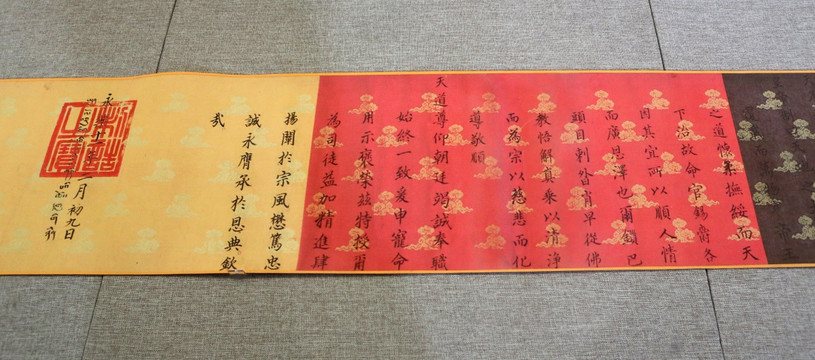 之道懷柔撫綏而天
下治故命官錫爵各
因其宜所以順人情
而廣恩澤也爾鎖巴
頭目剌昝肖早從佛
教悟解真乘以清淨
而為宗以慈悲而化
導敬順
天道尊仰朝廷竭誠奉職
始終一致爰申寵命
用示褒榮茲特授爾
為司徒益加精進肆
揚闡於宗風懋篤忠
誠永膺承於恩典欽
哉
永樂十一年二月初九日
制誥之寶